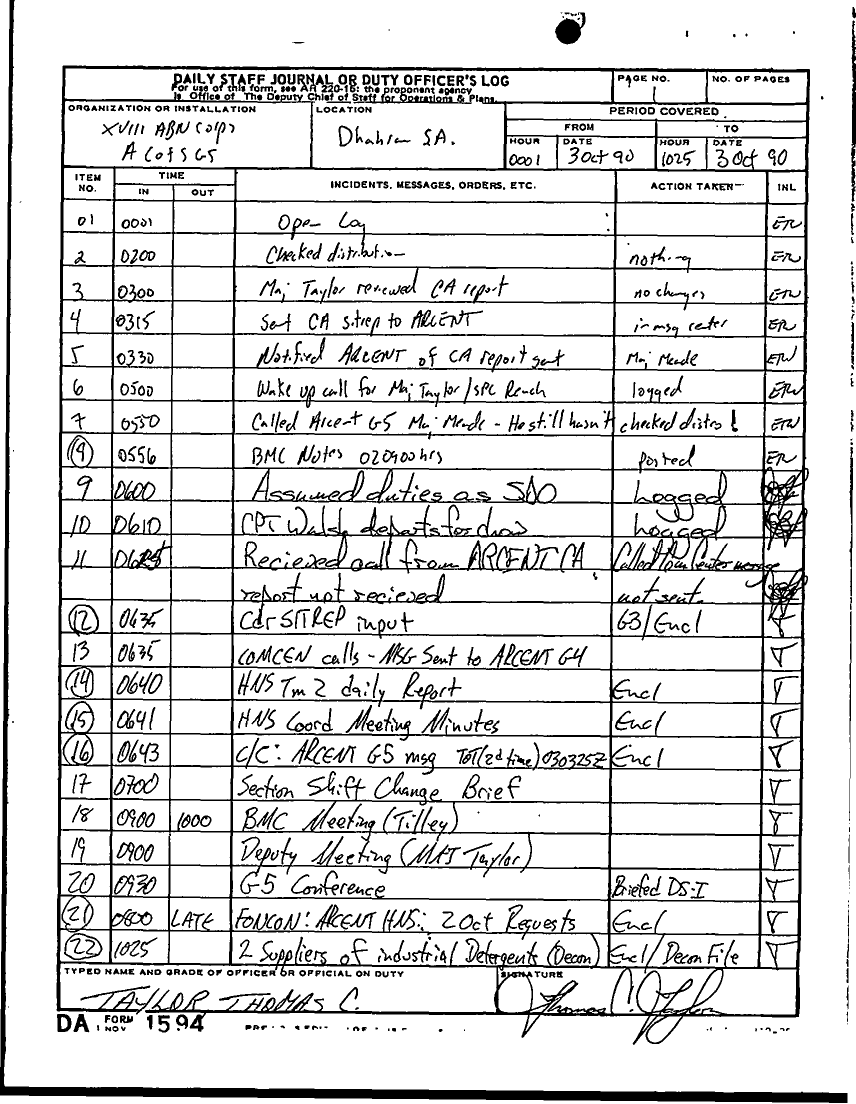 DAILY STAFF JOURNAL OR DUTY OFFICER'S LOG
For use of this form, see AR 220-15: the proponent agency
is Office of The Deputy Chief of Staff for Operations & Plans.
PAGE NO. 1
NO. OF PAGES
ORGANIZATION OR INSTALLATION
XVIII ABN Corps
A C of S G5
LOCATION
Dhahran SA.
PERIOD COVERED
FROM TO
HOUR DATE HOUR DATE
0001 3 Oct 90 1025 3 Oct 90
ITEM NO. TIME IN OUT INCIDENTS, MESSAGES, ORDERS, ETC. ACTION TAKEN INL
01 0001 Open Log
2 0200 Checked distribution nothing
3 0300 Maj Taylor reviewed CA report no changes
4 0315 Sent CA sitrep to ARCENT in msg center
5 0330 Notified ARCENT of CA report sent Maj Meade
6 0500 Wake up call for Maj Taylor/SPC Reach logged
7 0550 Called Arcent G5 Maj Meade - He still hasn't checked distro!
0556 BMC Notes 020900hrs posted
9 0600 Assumed duties as SDO Logged
10 0610 CPT Walsh departs for chow Logged
11 Recieved call from ARCENT CA Called Com Center message
report not recieved not sent.
12 0635 Cdr SITREP input G3/Encl
13 0635 COMCEN calls - MSG Sent to ARCENT G4
14 0640 HNS Tm 2 daily Report Encl
15 0641 HNS Coord Meeting Minutes Encl
16 0643 C/C: ARCENT G5 msg TOT (2d time) 030325Z Encl
17 0700 Section Shift Change Brief
18 0900 1000 BMC Meeting (Tilley)
19 0900 Deputy Meeting (MAJ Taylor)
20 0930 G-5 Conference Briefed DS-I
21 0800 LATE FONCON: ARCENT HNS: 2 Oct Requests Encl
22 1025 2 Suppliers of industrial Detergents (Decon) Encl/Decon File
TYPED NAME AND GRADE OF OFFICER OR OFFICIAL ON DUTY
TAYLOR THOMAS C.
SIGNATURE
Thomas C. Taylor
DA FORM 1 NOV 1594